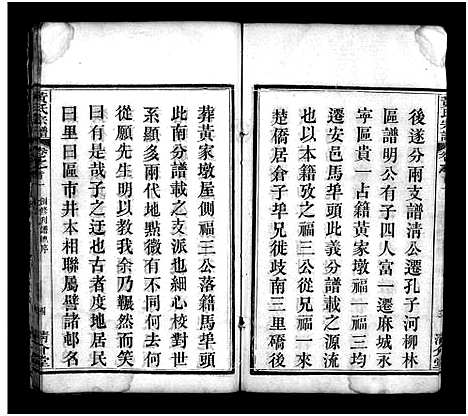 黃氏宗譜
後遂分兩支譜清公遷孔子河柳林
區譜明公有子四人富一遷麻城永
寧區貴一占籍黃家墩福一福三均
遷安邑馬埠頭此義分譜載之源流
也迨其後福三公從兄福一福三由
楚僑居倉子埠兄徙歧南三里礄後
葬黃家墩屋側福三公落籍馬埠頭
此南分譜載之支派也細心校對世
系顯多兩代地點微有不同去何去
從願先生明以教我余乃囅然而笑
曰有是哉子之迂也古者度地居民
曰里曰區市井本相聯屬譬諸邨名
黃氏宗譜
卷之首